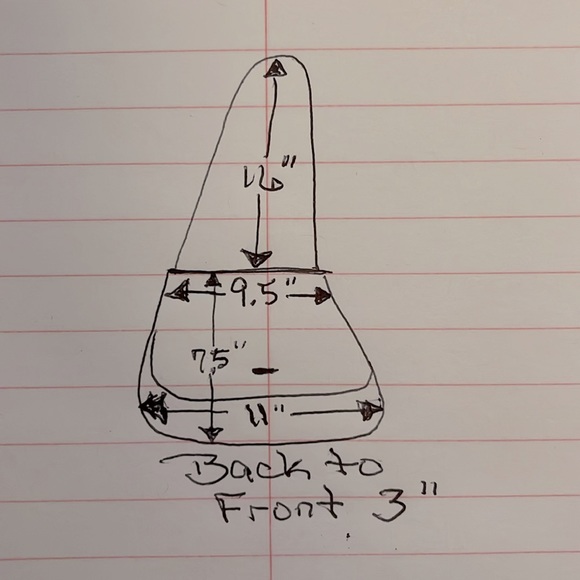 16"
9.5"
7.5"
11"
Back to
Front 3"